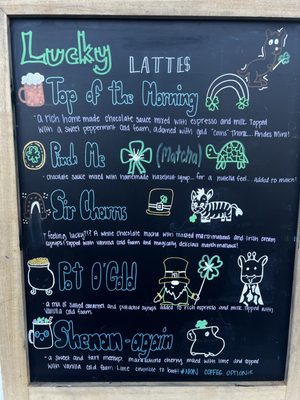 Lucky
LATTES
Top of the Morning
a rich home made chocolate sauce mixed with espresso and milk. Topped
with a sweet peppermint cold foam, adorned with gold "coins" Think... Andes Mint!
Pinch Me (Matcha)
chocolate sauce mixed with homemade hazelnut syrup... for a nutella feel... added to matcha!
Sir Charms
"feeling lucky"!? A white chocolate mocha with toasted marshmallows and Irish cream
syrups! topped with vanilla cold foam and magically delicious marshmallows!
Pot O'Gold
a mix of salted caramel and syrups added to rich espresso and milk. topped with
vanilla cold foam.
Shenan-again
a sweet and tart meetup. maraschino cherry mixed with lime and topped
with vanilla cold foam. Lime crumble to boot! #NON COFFEE OPTION